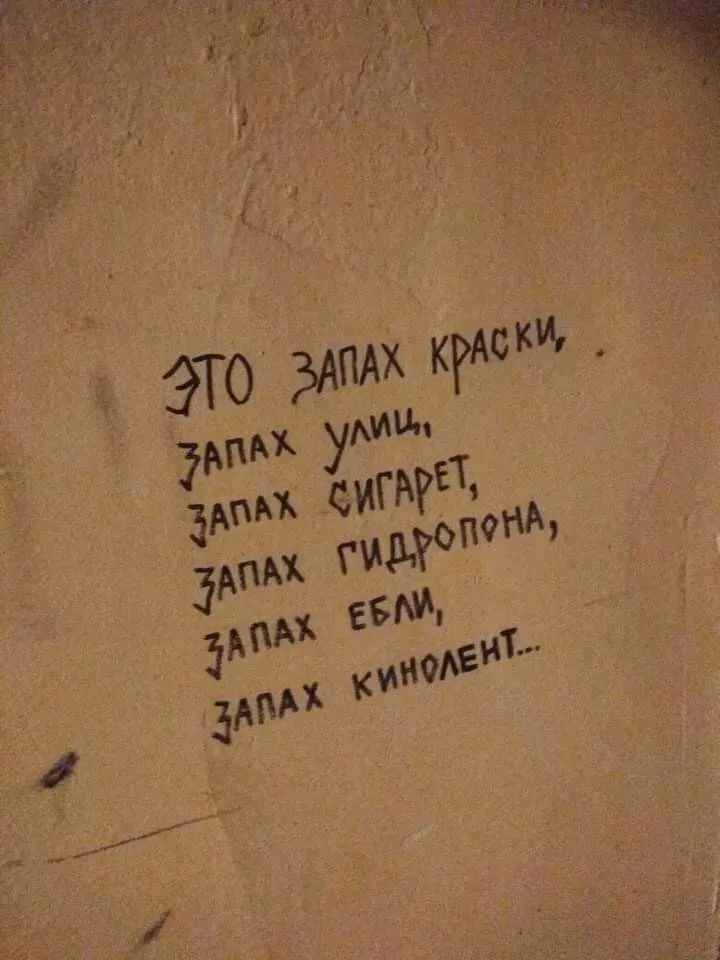 ЭТО ЗАПАХ КРАСКИ,
ЗАПАХ УЛИЦ,
ЗАПАХ СИГАРЕТ,
ЗАПАХ ГИДРОПОНА,
ЗАПАХ ЕБЛИ,
ЗАПАХ КИНОЛЕНТ...